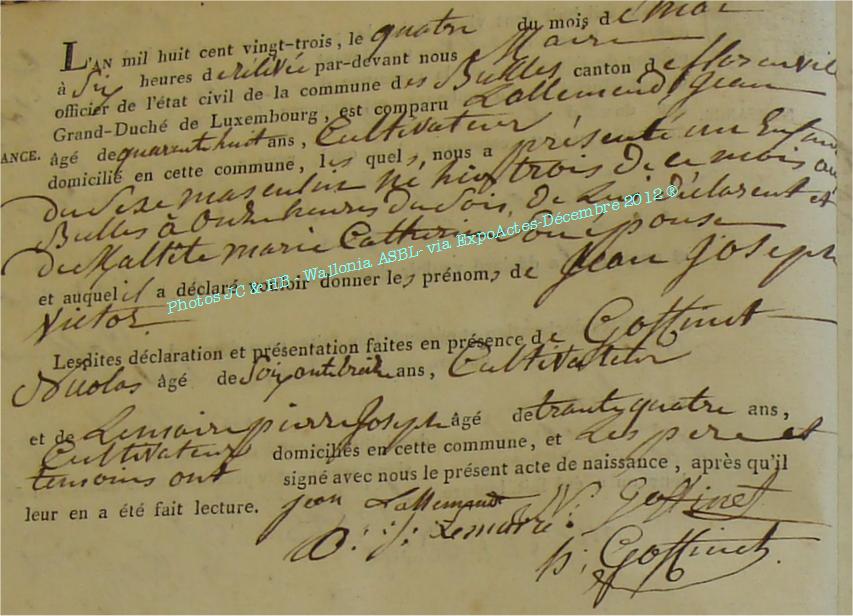 L'AN mil huit cent vingt-trois, le quatre du mois de mai
à Six heures de rélévée par-devant nous Maire
officier de l'état civil de la commune des Bulles canton de florenville
Grand-Duché de Luxembourg, est comparu Lallemend, Jean
ANCE. âgé de quarente huit ans, Cultivateur
domicilié en cette commune, les quels, nous a présenté un Enfant
du Sexe masculin né hier trois de ce mois au
Bulles à onze heures du Soir, de Lui déclarent et
de Maltete marie Catherine son epouse
et auquel il a déclaré vouloir donner les prénoms de Jean Joseph
Victor.
Photos JC & HB , Wallonia ASBL- via ExpoActes-Décembre 2012 ®
Lesdites déclaration et présentation faites en présence de Goffinet
Nicolas âgé de Soixante treize ans, Cultivateur
et de Lemaire pierre Joseph âgé de trante quatre ans,
Cultivateur domiciliés en cette commune, et Les pere et
temoins ont signé avec nous le présent acte de naissance, après qu'il
leur en a été fait lecture. jean Lallemand N: Goffinet
P: J: Lemaire
h: Goffinet